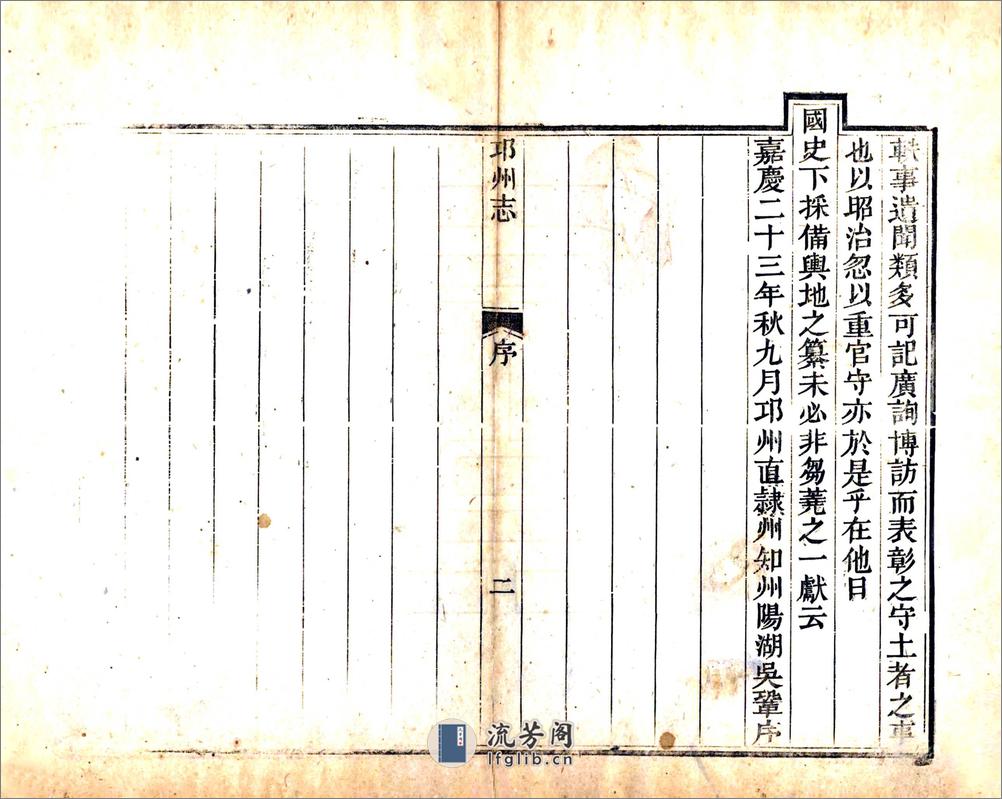 軼事遺聞類多可記廣詢博訪而表彰之守土者之事
也以昭治忽以重官守亦於是乎在他日
國史下採備輿地之纂未必非芻蕘之一獻云
嘉慶二十三年秋九月邛州直隸州知州陽湖吳鞏序
邛州志
序
二
流芳阁
lfglib.cn